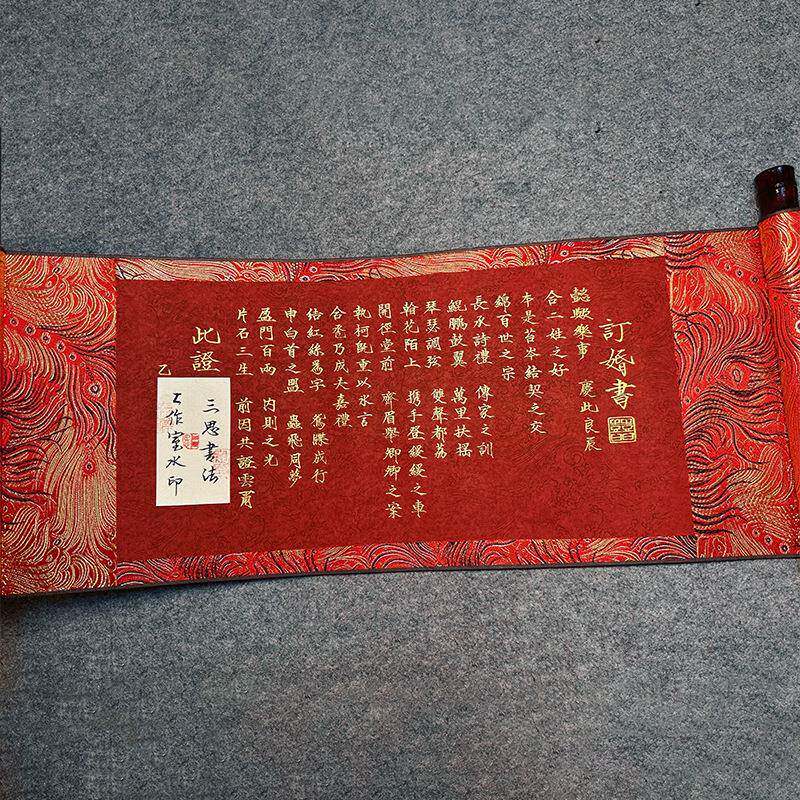 訂婚書
囍
懿歟樂事 慶此良辰
合二姓之好
本是苔岑結契之交
綿百世之宗
長承詩禮 傳家之訓
鯤鵬鼓翼 萬里扶搖
琴瑟調弦 雙聲都荔
翰花陌上 攜手登緩緩之車
開徑堂前 齊眉舉卿卿之案
執柯既重以氷言
合巹乃成夫嘉禮
結紅絲為字 鴛牒成行
申白首之盟 蟲飛同夢
盈門百兩 內則之光
片石三生 前因共證雲爾
此證
乙
三思書法
工作室水印